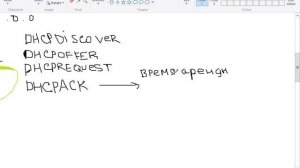 .0.0
DHCPDISCOVER
DHCPOFFER
DHCPREQUEST
DHCPACK → время аренды